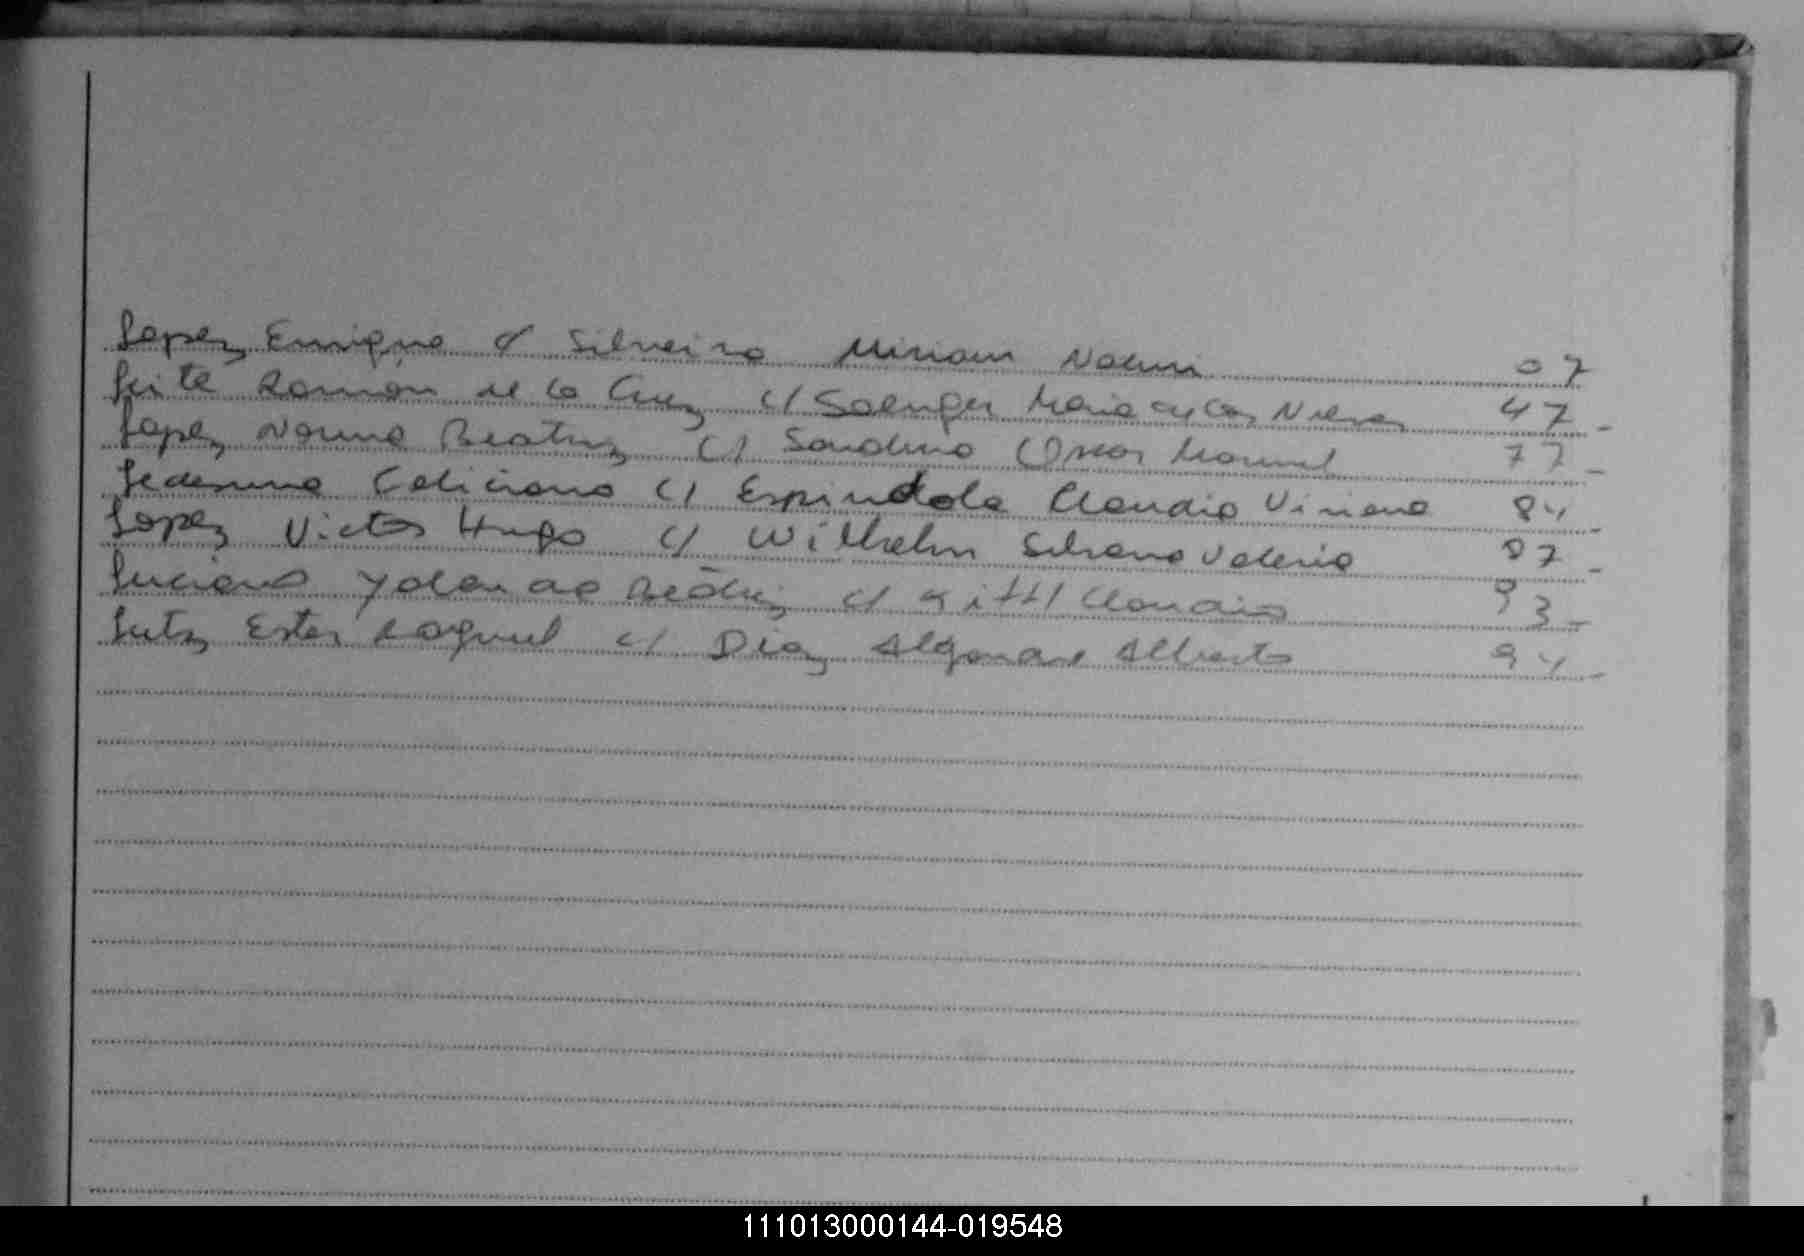 Lopez Enrique c/ Silveira Miriam Noemi 07
Leite Ramón de la Cruz c/ Saenger Maria de las Nieves 47-
Lopez Norma Beatriz c/ Sardino Oscar Manuel 77-
Ledesma Feliciano c/ Espindola Claudia Viviana 84-
Lopez Victor Hugo c/ Wilhelm Silvana Valeria 87-
Luciano Yolanda Beatriz c/ Kittl Claudio 93-
Lutz Ester Raquel c/ Diaz Alberto 94-
111013000144-019548